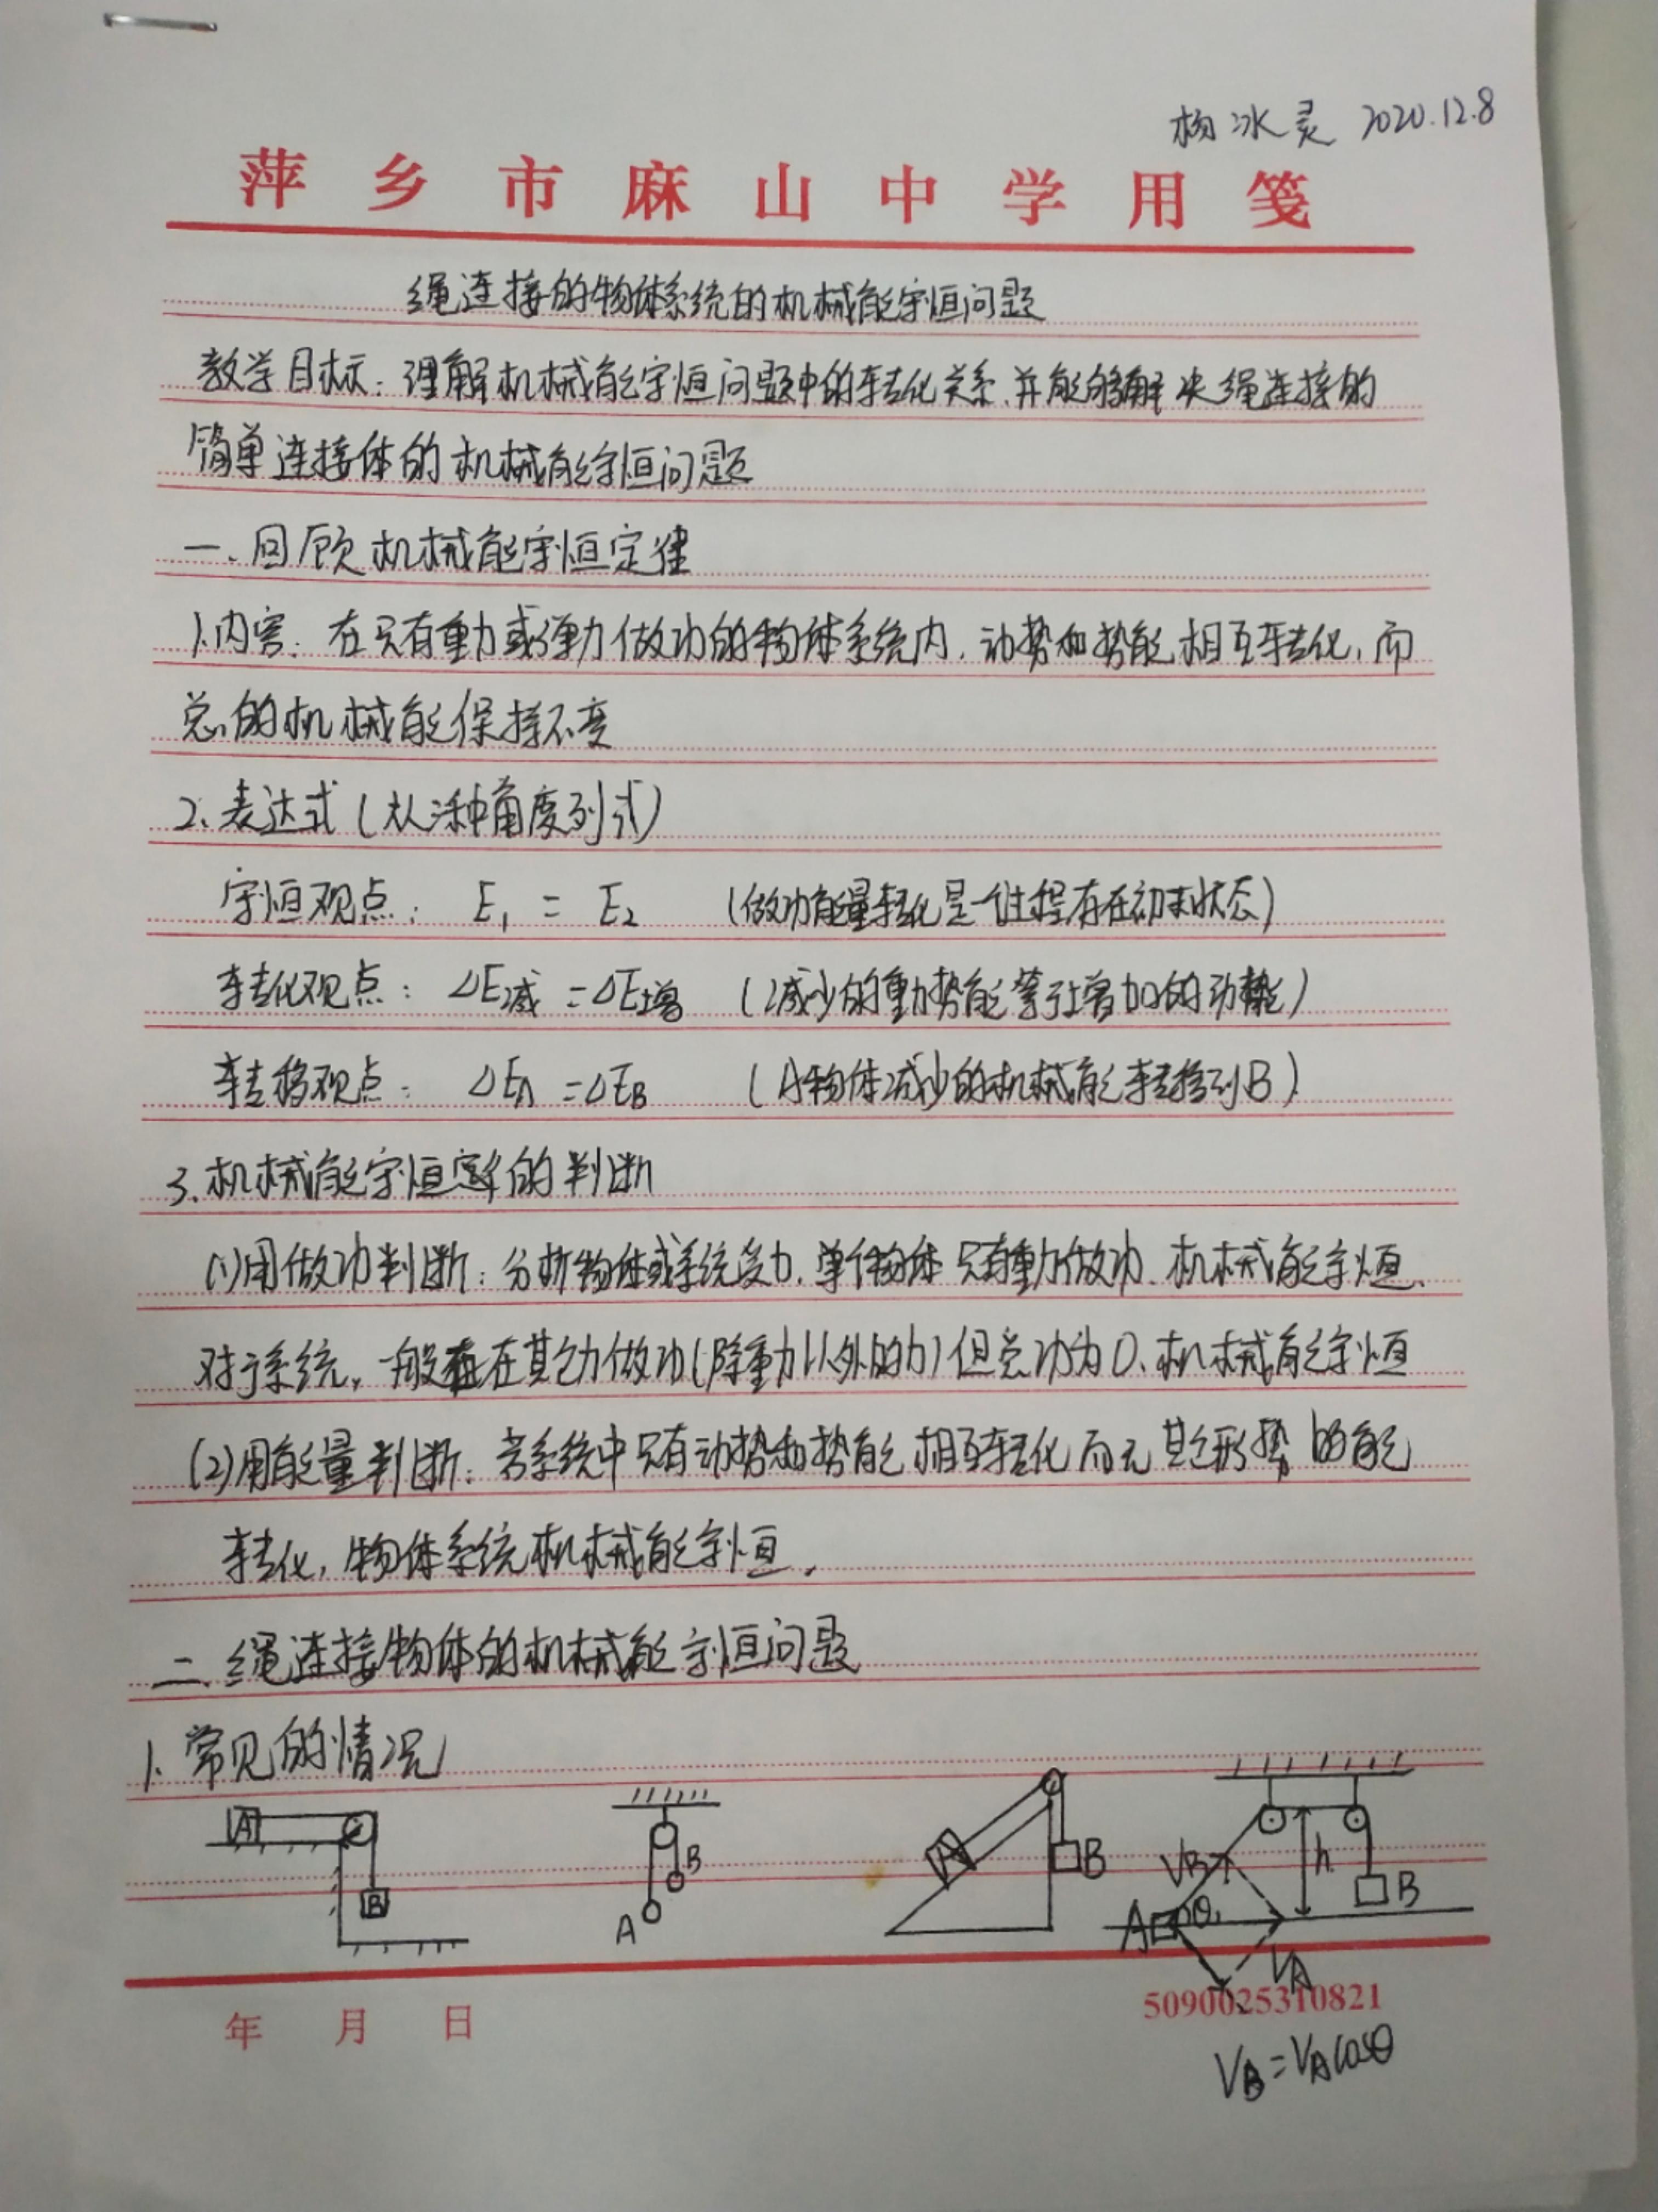 杨冰灵 2020.12.8
萍乡市麻山中学用笺
绳连接的物体系统的机械能守恒问题
教学目标：理解机械能守恒问题中的转化关系，并能够解决绳连接的
简单连接体的机械能守恒问题
一、回顾机械能守恒定律
1.内容：在只有重力或弹力做功的物体系统内，动势和势能相互转化，而
总的机械能保持不变
2.表达式（从三种角度列式）
守恒观点： E₁ = E₂ （做功能量转化是一个过程存在初末状态）
转化观点： ΔE减 = ΔE增 （减少的重力势能等于增加的动能）
转移观点： ΔEA = ΔEB （A物体减少的机械能转移到B）
3.机械能守恒定律的判断
(1)用做功判断：分析物体或系统受力，单个物体只有重力做功，机械能守恒.
对于系统，一般存在其它力做功（除重力以外的力）但总功为0，机械能守恒
(2)用能量判断：若系统中只有动势和势能相互转化而无其它形势的能
转化，物体系统机械能守恒.
二、绳连接物体的机械能守恒问题
1.常见的情况
A B
A B
A B
A VB θ h VA B
年 月 日
5090025310821
VB=VAcosθ